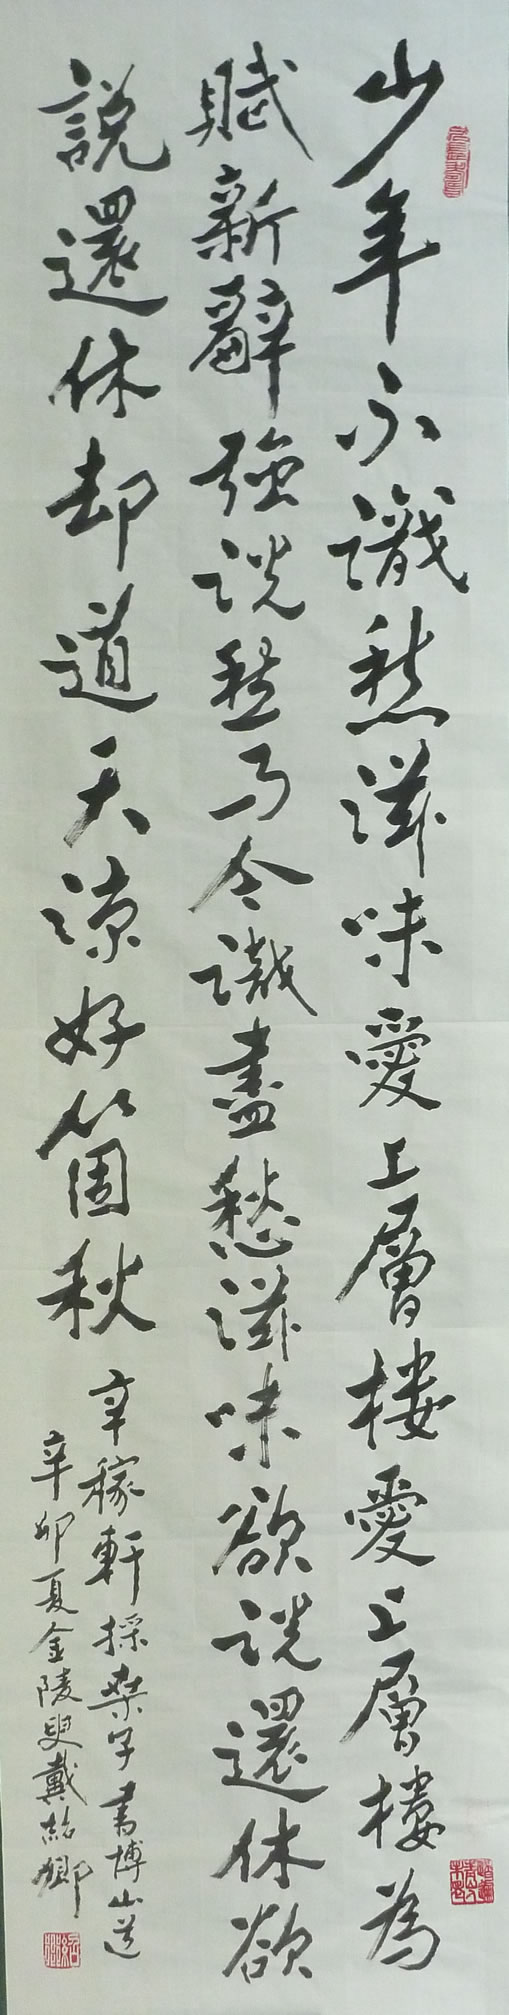 少年不識愁滋味愛上層樓愛上層樓為
賦新辭強說愁而今識盡愁滋味欲說還休欲
說還休却道天涼好箇秋
辛稼軒採桑子書博山道
辛卯夏金陵叟戴紹卿